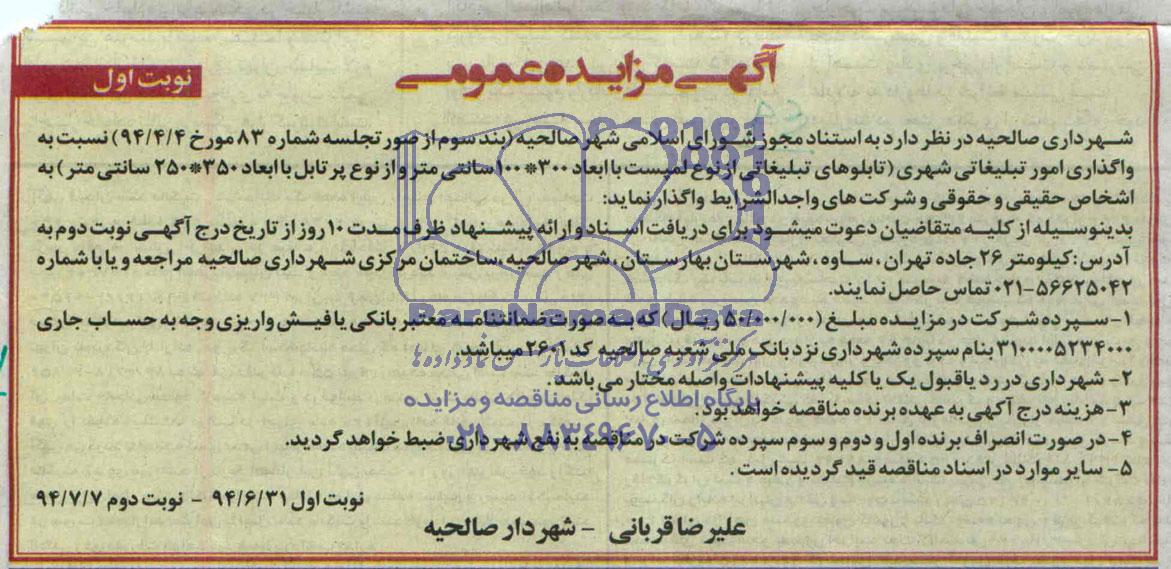 آگهی مزایده عمومی
نوبت اول
شهرداری صالحیه در نظر دارد به استناد مجوز شورای اسلامی شهر صالحیه (بند سوم از صور تجلسه شماره ۸۳ مورخ ۹۴/۴/۴) نسبت به
واگذاری امور تبلیغاتی شهری (تابلوهای تبلیغاتی از نوع لمپست با ابعاد ۳۰۰*۱۰۰ سانتی متر و از نوع پرتابل با ابعاد ۳۵۰*۲۵۰ سانتی متر) به
اشخاص حقیقی و حقوقی و شرکت های واجدالشرایط واگذار نماید:
بدینوسیله از کلیه متقاضیان دعوت میشود برای دریافت اسناد و ارائه پیشنهاد ظرف مدت ۱۰ روز از تاریخ درج آگهی نوبت دوم به
آدرس: کیلومتر ۲۶ جاده تهران، ساوه، شهرستان بهارستان، شهر صالحیه، ساختمان مرکزی شهرداری صالحیه مراجعه و یا با شماره
۰۲۱-۵۶۶۲۵۰۴۲ تماس حاصل نمایند.
۱- سپرده شرکت در مزایده مبلغ (۵۰/۰۰۰/۰۰۰ ریال) که به صورت ضمانتنامه معتبر بانکی یا فیش واریزی وجه به حساب جاری
۳۱۰۰۰۰۵۲۳۴۰۰۰ بنام سپرده شهرداری نزد بانک ملی شعبه صالحیه کد ۲۶۰۱ میباشد.
۲- شهرداری در رد یا قبول یک یا کلیه پیشنهادات واصله مختار می باشد.
۳- هزینه درج آگهی به عهده برنده مناقصه خواهد بود.
۴- در صورت انصراف برنده اول و دوم و سوم سپرده شرکت در مناقصه به نفع شهرداری ضبط خواهد گردید.
۵- سایر موارد در اسناد مناقصه قید گردیده است.
نوبت اول ۹۴/۶/۳۱ - نوبت دوم ۹۴/۷/۷
علیرضا قربانی - شهردار صالحیه
ParsNamadData
پایگاه اطلاع رسانی مناقصه و مزایده
۰۲۱-۸۸۳۴۹۶۷۰-۵